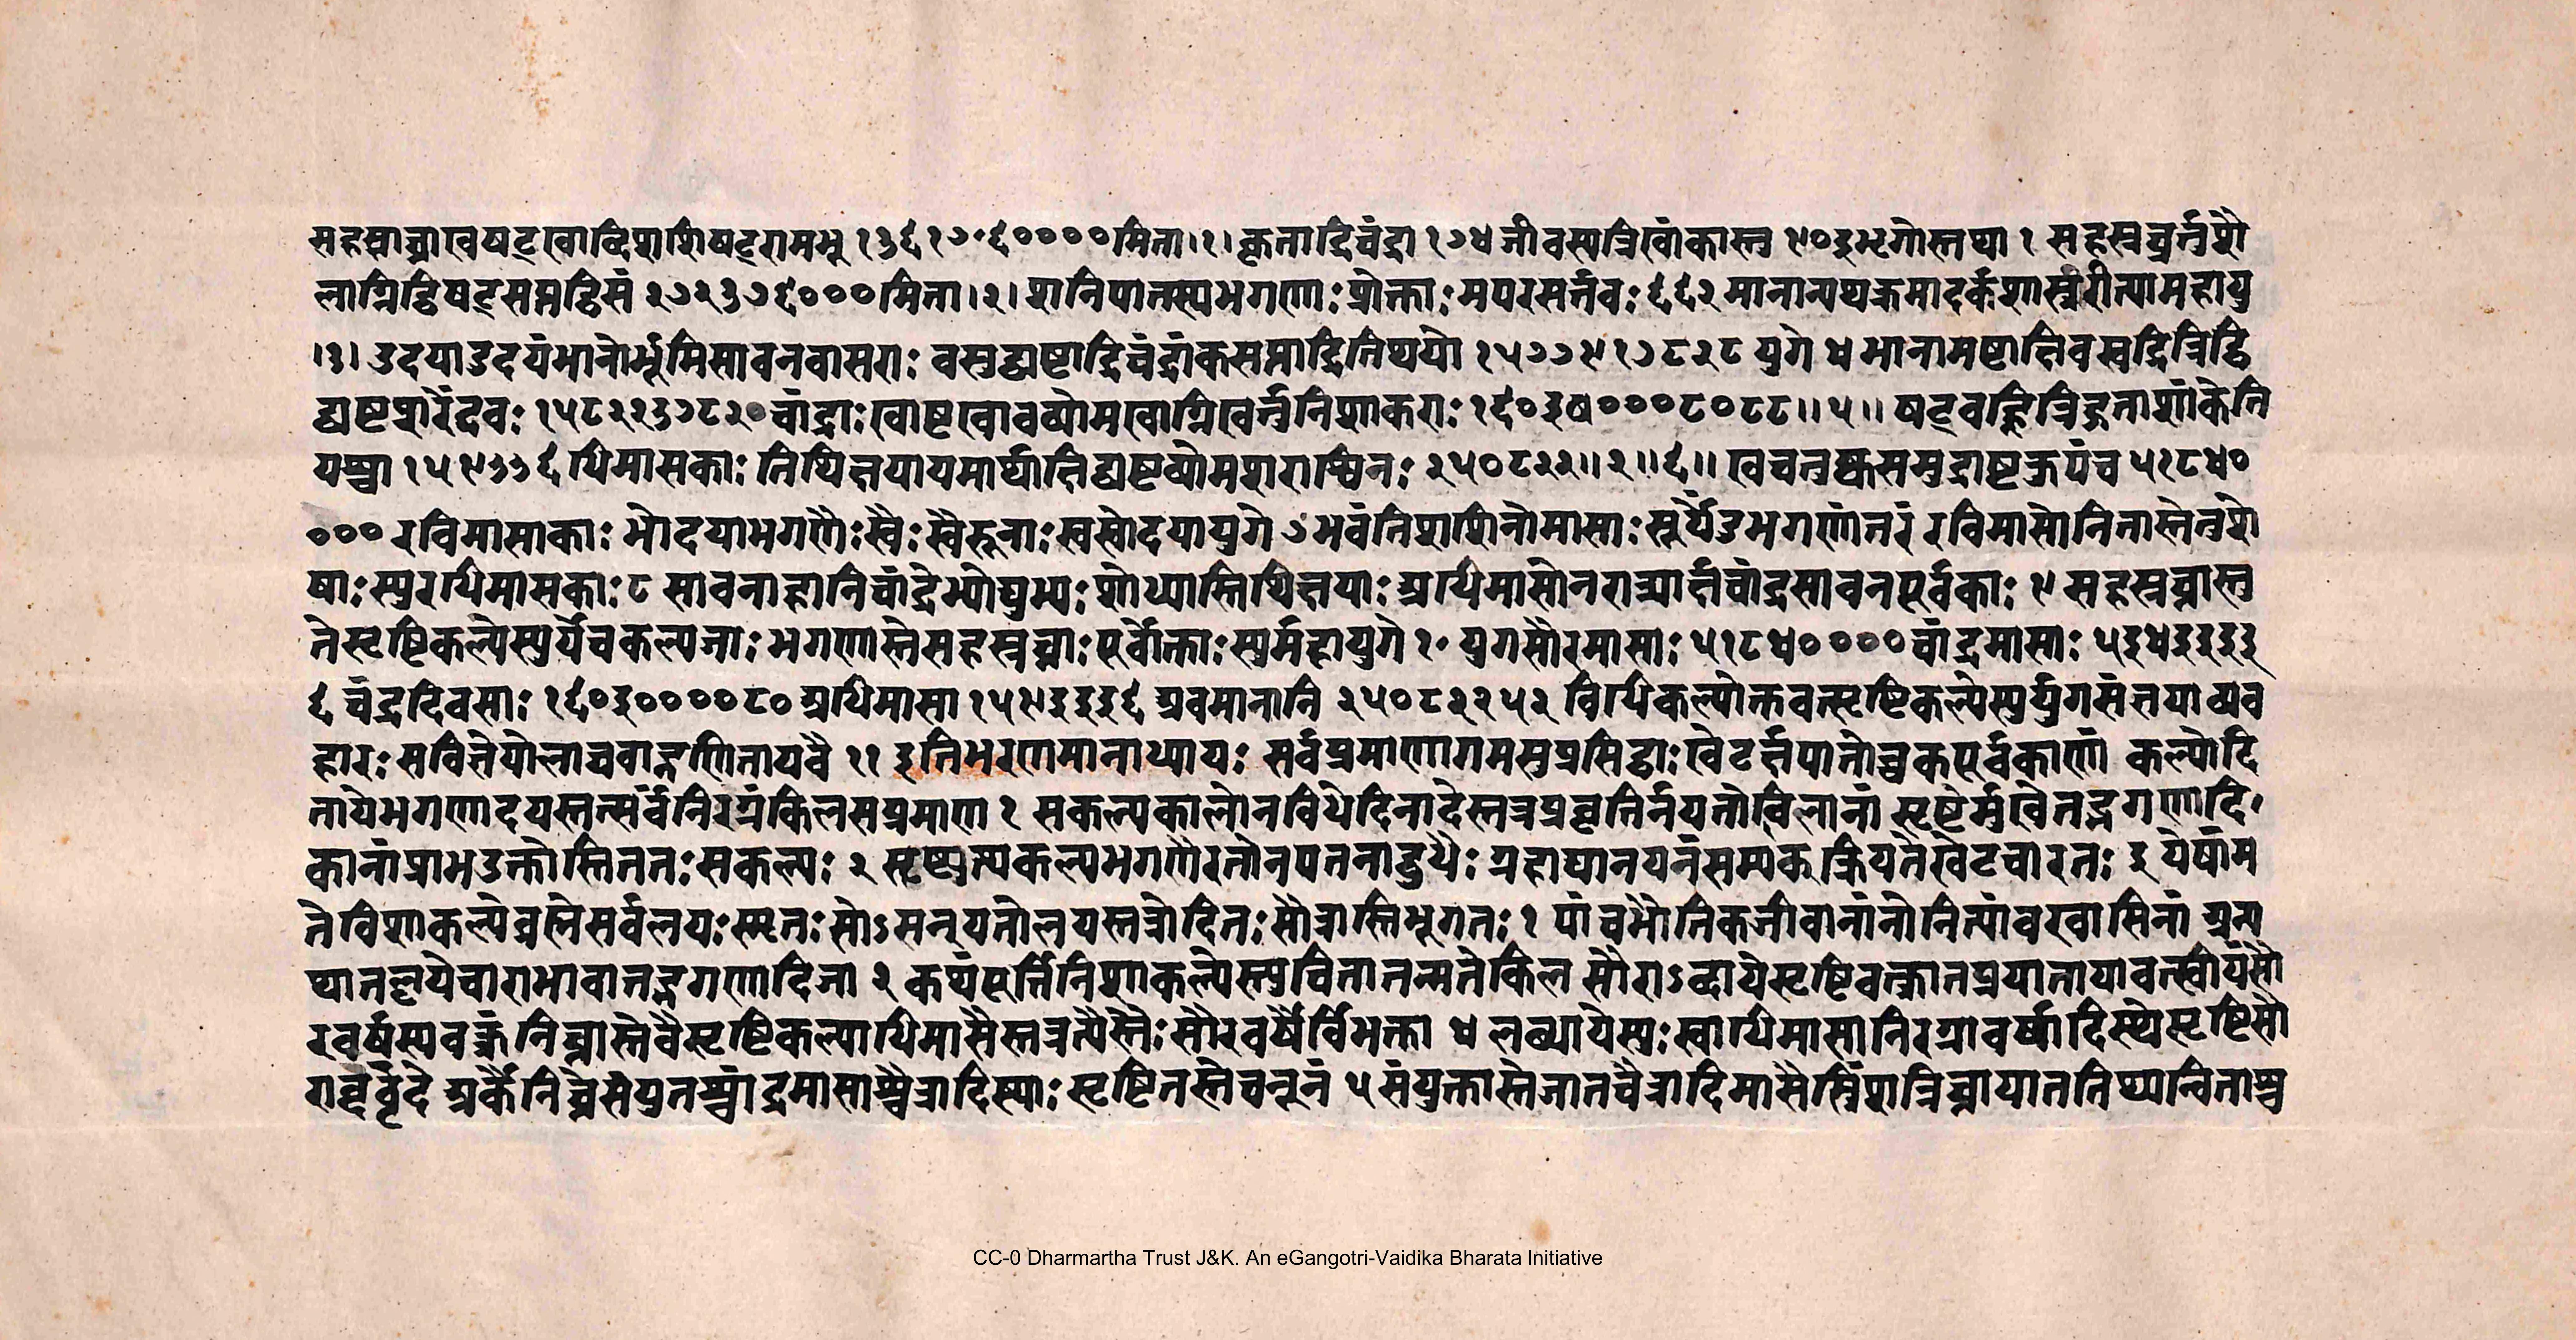 सहस्राच्राखषट्खाब्दिशशिषट्रामभू १३६१७०६००००मिता।१।कृताद्रिचंद्रा १७४ जीवस्यत्रिखांकास्तु ९०३भृगोस्तथा १ सहस्रघ्नर्तुशै
लाग्निद्विषट्सप्तद्विसं २७२३७६०००मिता।२।शनिपातस्यभगणाः प्रोक्ताः मपरसर्तवः ६६२ मानान्यथक्रमादर्कशास्त्ररीत्यामहायु
।३। उदयाउदयंभानोर्भूमिसावनवासराः वसुद्व्यष्टाद्रिचंद्रांकसप्ताद्रितिथयो १५७७९१७८२८ युगे ४ भानामष्टाक्षिवस्वद्रित्रिद्वि
द्व्यष्टशरेंदवः १५८२२३७८२०चांद्राः खाष्टखावव्योमखाग्निखर्तुनिशाकराः १६०३ष०००८०८८॥५॥ षट्वह्नित्रिहुताशांकेति
यश्चा १५९३३६ धिमासकाः तिथिक्षयायमार्थाक्षिद्व्यष्टव्योमशराश्विनः २५०८२२॥२॥६॥ खचतुष्कसमुद्राष्टकुपंच ५१८४०
००० रविमासाकाः भोदयाभगणैः स्वैः स्वैरूनाः स्वस्वोदयायुगे ७ भवंतिशशिनोमासाः सूर्येंडुभगणांतरं रविमासोनितास्तेतुशे
षाः स्युरधिमासकाः ८ सावनाहानिचांद्रेभ्योद्युभ्यः शोध्यास्तिथिक्षयाः अधिमासोनरात्र्यार्क्षचांद्रसावनपूर्वकाः ९ सहस्रघ्नास्तु
तेसृष्टिकल्पेस्युर्येचकल्पजाः भगणास्तेसहस्रघ्नाः पूर्वोक्ताः स्युर्महायुगे १० युगसौरमासाः ५१८४००००चांद्रमासाः ५३४३३३३
६ चंद्रदिवसाः १६०३००००८० अधिमासा १५९३३३६ अवमानानि २५०८२२५२ विधिकल्पोक्तवत्सृष्टिकल्पेस्युर्युगसंक्षयाव्यव
हारः सवित्तेयोलाचवाद्गणितायवै ११ इतिभरणमानाध्यायः सर्वप्रमाणागमसुप्रसिद्धाः खेटर्क्षपातोच्चकपूर्वकाणां कल्पोदि
तायेभगणादयस्तत्सर्वंनिरग्रंकिलसप्रमाणा १ सकल्पकालोनविधेदिनादेस्तत्रप्रवृत्तिर्नयतोखिलानां सृष्टेर्मुखेतद्भगणादि
कानांप्रामभउक्तोस्तिततः सकल्पः २ सृष्ट्युत्यकल्पभगणैरतोनपतनाद्बुधैः ग्रहाद्यानयनंसम्यक्क्रियतेखेटचारतः ३ येषांम
तेविशाकल्पेब्रस्तेसर्वलयः स्मृतः सोऽसन्यतोलयस्तत्रोदितः सौत्रास्तिभूगतः १ पांचभौतिकजीवानांनोनित्यांबरवासिनां अन्य
थानह्यृयेचाराभावातद्भगणादिजा २ कथंपूर्त्तिनिशाकल्पेस्युवितातन्मतेकिल सौराऽब्दायेसृष्टिवक्त्रातप्रयातायावत्स्वीयंसौ
रवर्षस्यवक्त्रं निघ्नास्तेवैसृष्टिकल्पाधिमासैस्तत्रत्यैस्तैः सौरवर्षैर्विभक्ता ४ लब्धायेस्युः स्वाधिमासानिरग्रावर्षादिस्थेसृष्टिसौ
राब्दवृंदे अर्कैर्निघ्नेसंयुतश्चांद्रमासाश्चैत्रादिस्थाः सृष्टितस्तेचनूनं ५ संयुक्तास्तेजातचैत्रादिमासैस्त्रिंशन्निघ्नायाततिथ्यन्विताश्च
CC-0 Dharmartha Trust J&K. An eGangotri-Vaidika Bharata Initiative